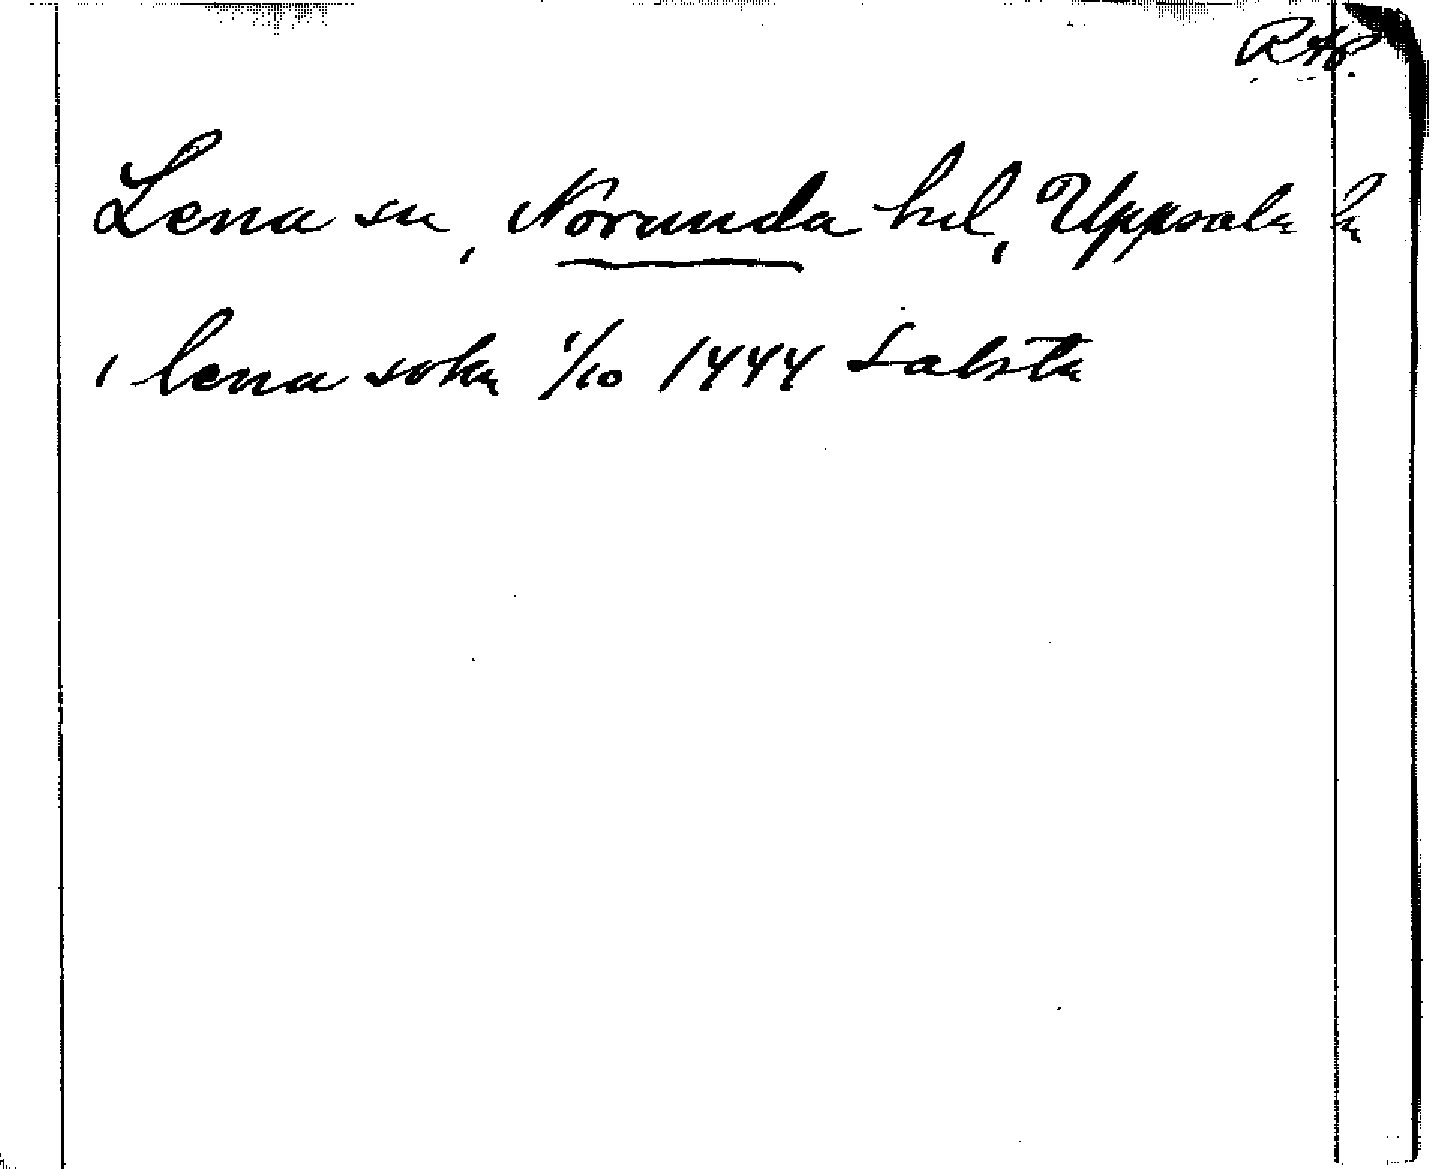 RAP.
Lena sn, Norunda hd, Uppsala ln
i lena sokn 1/10 1444 Salsta